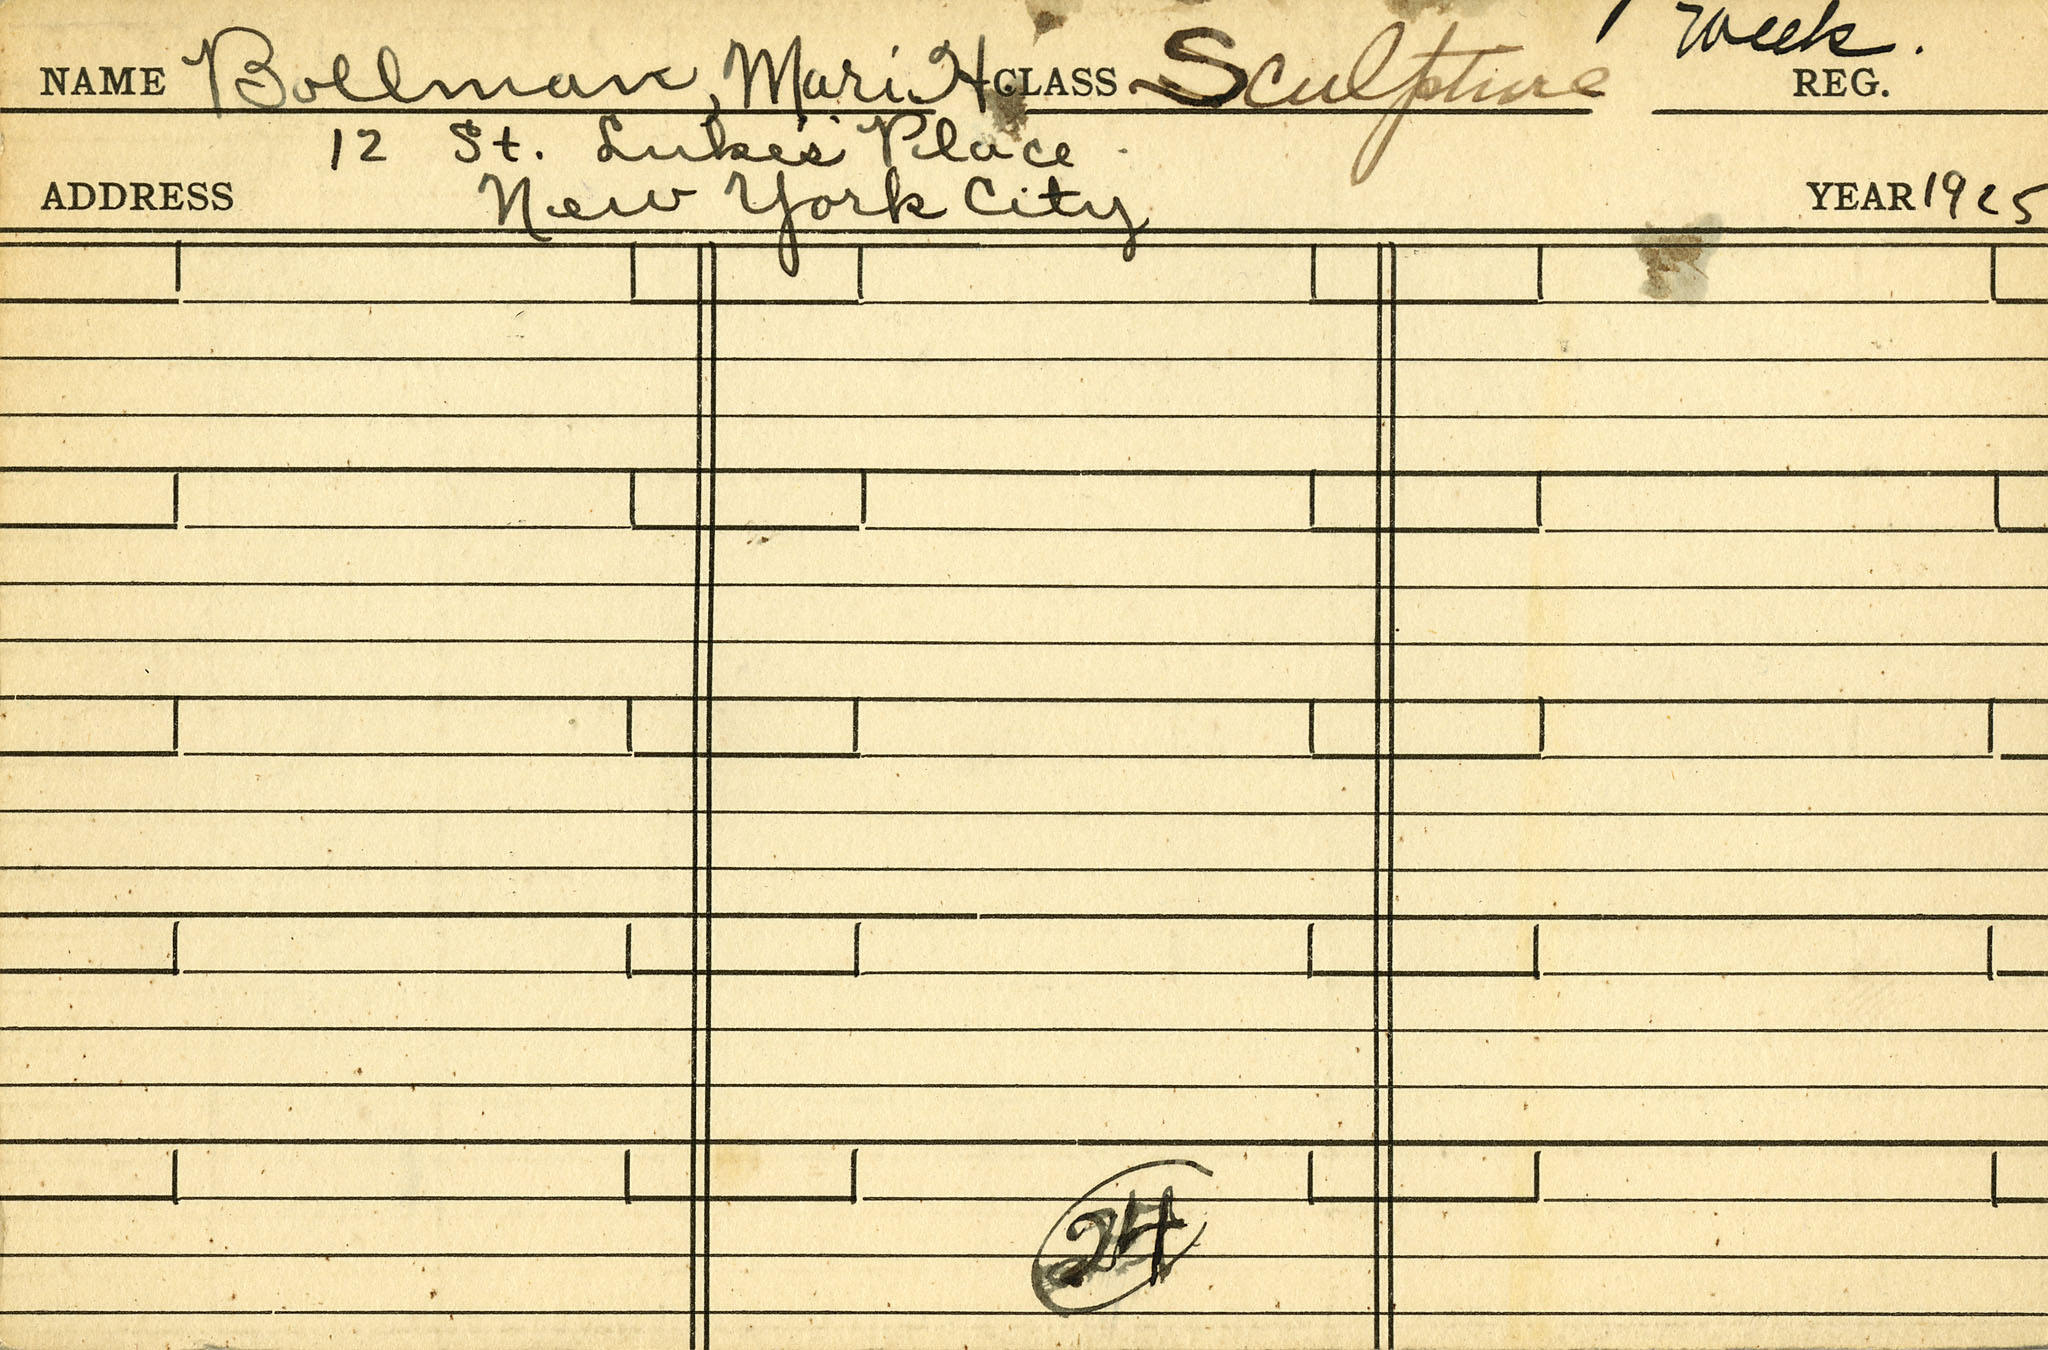 week.
NAME Bollman, Mari H CLASS Sculpture REG.
12 St. Luke's Place
ADDRESS New York City YEAR 1925
24